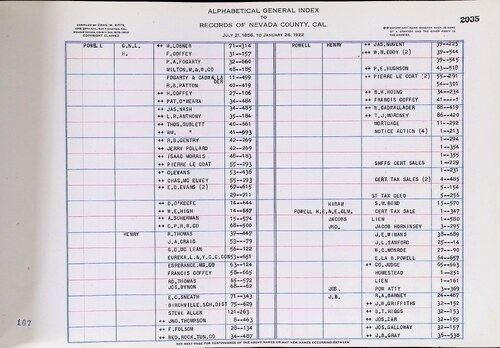 ALPHABETICAL GENERAL INDEX
TO
RECORDS OF NEVADA COUNTY, CAL.
JULY 21, 1856, TO JANUARY 28, 1922
2035
POWELL G.N.L. ++ W.LOBNER 71—314
H. F.COFFEY 31—157
P.A.FOGARTY 32—660
WILTON,M.&R.CO 48—185
FOGARTY & CADWALADER 11—499
R.B.PATTON 40—419
++ H.COFFEY 27—106
++ PAT.O'MEARA 34—484
++ JAS.NASH 34—485
++ L.R.ANTHONY 35—184
++ THOS.SUBLETT 40—661
++ WM. " 41—693
++ R.B.GENTRY 42—269
++ JERRY POLLARD 42—269
++ ISAAC MORRIS 48—183
++ PIERRE LE COAT 55—293
++ OLEVANS 53—436
++ CHAS.MC ELVEY 55—293
++ E.D.EVANS (2) 57—615
29—711
++ D.O'KEEFE 14—644
++ W.E.HIGH 14—647
++ A.SCHERMAN 15—574
++ C.P.R.R.CO 68—500
HENRY R.THOMAS 37—447
J.A.CRAIG 53—79
G.D.MC LEAN 56—122
EUREKA.L.&.Y.C.C.CO 53—651
ESPERANCE.MG.CO 63—124
FRANCIS COFFEY 58—665
RD.THOMAS 65—572
JOS.BYNON 68—62
E.G.SNEATH 71—343
BIRCHVILLE.SCH.DIST 75—629
STEVE ALLEN 121-263
++ JNO.THOMPSON 8—463
++ F.FOLSON 28—134
++ BED.ROCK.TUN.CO 34—487
POWELL HENRY ++ JAS.NUGENT 39—225
++ W.H.EDDY (2) 39—504
39—545
++ P.E.HUGHSON 43—518
++ PIERRE LE COAT (2) 55—291
54—301
++ B.H.HOING 34—234
++ FRANCIS COFFEY 41—1
++ R.CADRALLADER 88—419
++ T.J.MORONEY 86—420
MORTGAGE 11—292
NOTICE ACTION (4) 1—213
1—294
1—354
1—354
SHFFS CERT SALES 1—229
1—231
CERT TAX SALES (2) 4—405
5—154
ST TAX DEED 5—256
HIRAM S.W.BOND 15—570
POWELL H.E.&.E.CLM. CERT TAX SALE 1—347
JACOBS LIEN 1—580
JNO. JACOB HORNINSEY 3—295
J.E.WINANS 38—689
J.L.SANFORD 25—14
R.D.MONROE 27—90
E.LA S.POWELL 54—657
++ CO.JUDGE 65—663
HOMESTEAD 1—251
LIEN 1—161
JOS. POR ATTY 3—369
J.B. R.A.BARNEY 24—407
++ J.R.GRIFFITHS 32—152
++ D.T.RIGGS 32—153
++ JOS.ZAR 32—155
++ JOS.GALLOWAY 32—157
++ J.B.GRAY 36—538
107